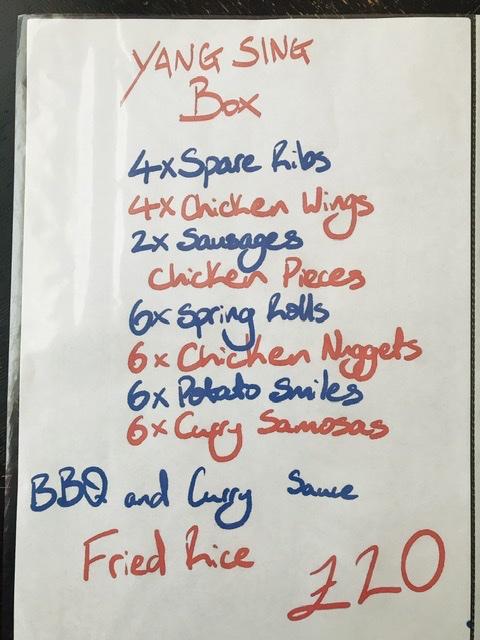 YANG SING
Box
4x Spare Ribs
4x Chicken Wings
2x Sausages
Chicken Pieces
6x Spring Rolls
6x Chicken Nuggets
6x Potato Smiles
6x Curry Samosas
BBQ and Curry Sauce
Fried Rice
£20